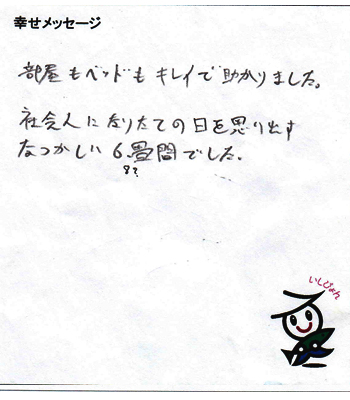 幸せメッセージ
部屋もベッドもキレイで助かりました。
社会人になりたての日を思い出す
なつかしい6畳間でした。
8?
いしぴょん